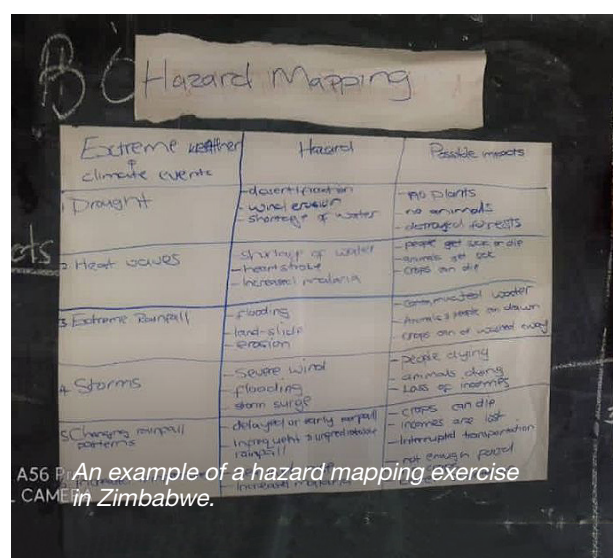 Hazard Mapping
Extreme weather
&
climate events
Hazard
Possible impacts
1 Drought
- desertification
- wind erosion
- shortage of water
- no plants
- no animals
- destroyed forests
2 Heat waves
- shortage of water
- heartstroke
- Increased malaria
- people get sick or die
- animals get sick
- crops can die
3 Extreme Rainfall
- flooding
- land-slide
- erosion
- contaminated water
- Animals & people can drown
- crops can be washed away
4 Storms
- Severe wind
- flooding
- storm surge
- people dying
- animals dying
- Loss of incomes
5 Changing rainfall
patterns
- delayed or early rainfall
- Infrequent &
rainfall
- crops can die
- incomes are lost
- Interrupted transportation
- not enough food
- Increased malaria
A56
CAMERA
An example of a hazard mapping exercise
in Zimbabwe.